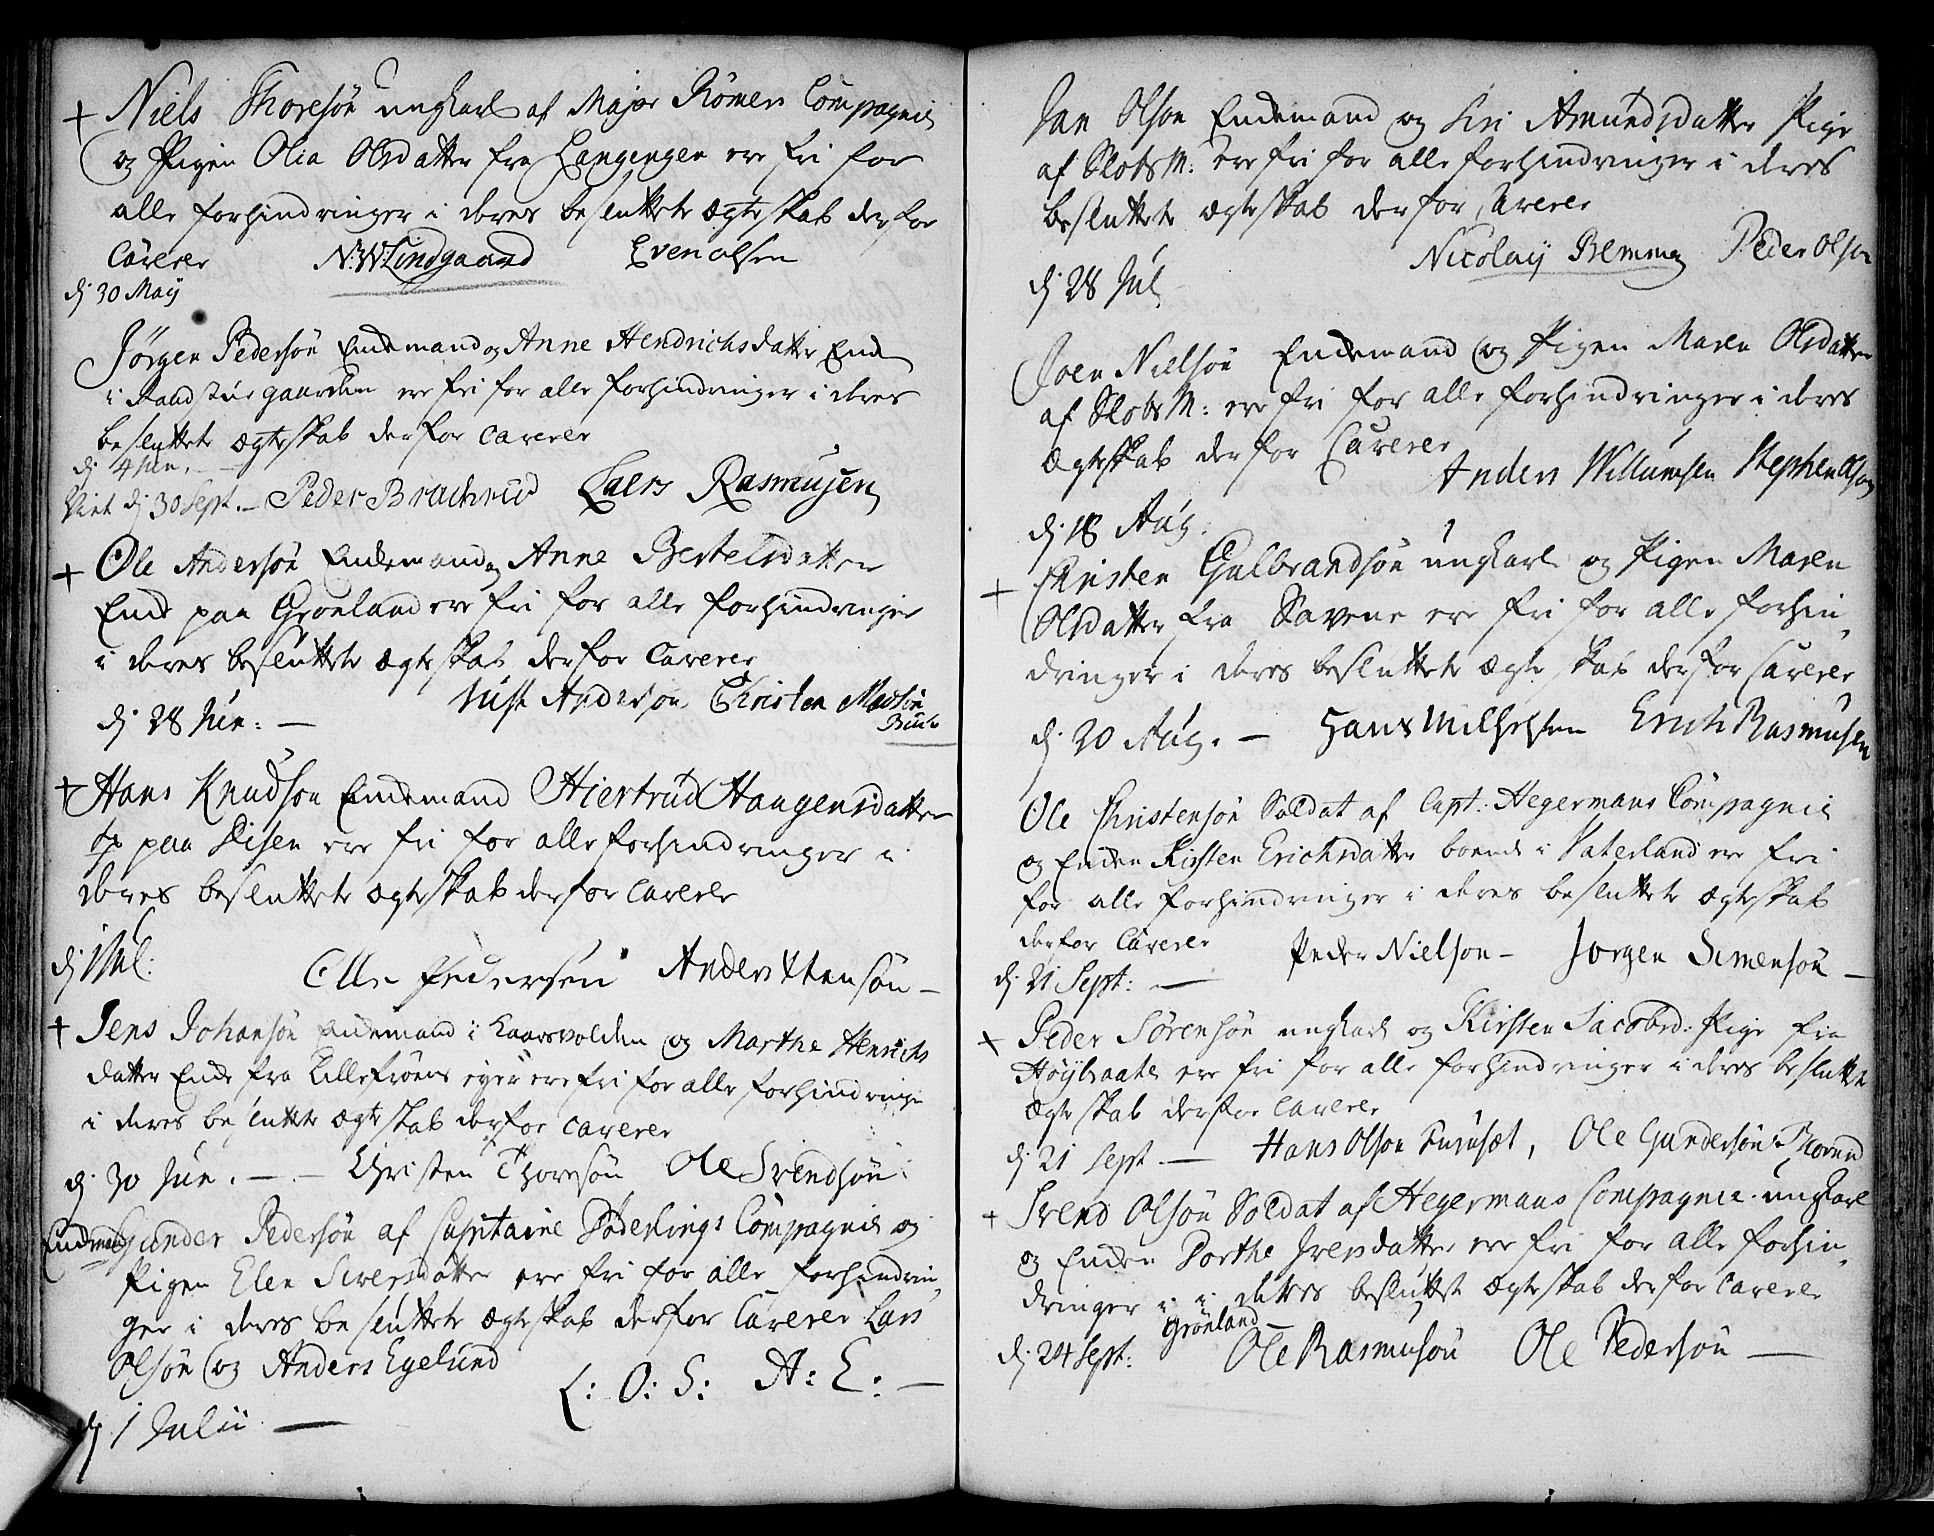 + Niels Thoresøn ungkarl af Major Rømers Compagnie
og Pigen Olia Olsdatter fra Langengen ere fri for
alle forhindringer i deres besluttete ægteskab derfor
Caverer N:W:Lindgaard Even olsen
dj 30 Maij
Jørgen Pedersøn Enckemand og Anne Hendrichsdatter Enck
i Randsturgaarden ere fri for alle forhindringer i deres
besluttete ægteskab derfor caverer
dj 4 Jun.
Viet dj 30 Sept. – Peder Brachrud Laers Rasmusen
+ Ole Andersøn Enckemand og Anne Bertelsdatter
Encke paa Grønland ere fri for alle forhindringer
i deres besluttete ægteskab derfor Caverer
Anderson Christen Madsøn
dj 28 Jun: –
+ Hans Knudson Enckemand Hiertrud Haagensdatter
paa Disen ere fri for alle forhindringer i
deres besluttete ægteskab derfor caverer
dj 1 Jul:
Olle Pedersen Anders Stensøn –
+ Jens Johansøn Enckemand i Laarsvolden og Marthe Henrichs
datter Encke fra Lillefrøens eyer ere fri for alle forhindringer
i deres besluttete ægteskab derfor caverer
dj 30 Jun. – – Christen Thoresøn Ole Svendsøn
Enckemand Gunder Pedersøn af Capitaine Compagnie og
Pigen Elen Siversdatter ere fri for alle forhindrin
ger i deres besluttete ægteskab derfor Caverer Lars
Olsøn og Anders Egelund
L: O: S: A: E: –
dj 1 Julii –
Jan Olson Enckemand og Siri Amundsdatter Pige
af Slots M: ere fri for alle forhindringer i deres
besluttete ægteskab derfor Caverer
Nicolaij Bemmer Peder Olson
dj 28 Jul
Joen Nielsøn Enckemand og Pigen Maren Olsdatter
af Slots M: ere fri for alle forhindringer i deres
ægteskab derfor Caverer
Anders Willumsen Stephen Olson
dj 18 Aug.
+ Christen Gulbrandsøn ungkarl og Pigen Maren
Olsdatter fra Savene ere fri for alle forhin,
dringer i deres besluttete ægteskab derfor Caverer
dj 20 Aug. – Hans Milhelsen Erich Rasmusen
Ole Christensøn Soldat af Capt. Hegermans Compagnie
og Encken Kirsten Erichsdatter boende i Vaterland ere fri
for alle forhindringer i deres besluttete ægteskab
derfor Caverer Peder Nielson – Jørgen Simensøn –
dj 21 Sept: –
+ Peder Sørensøn ungkarl og Kirsten Jacobsd: Pige fra
Høybraaten ere fri for alle forhindringer i deres besluttete
ægteskab derfor caverer
dj 21 Sept – Hans Olson Furuset, Ole Gundersøn
+ Svend Olsøn Soldat af Hegermans Compagnie ungkarl
og Encken Dorthe Iversdatter ere fri for alle forhin,
dringer i deres besluttet ægteskab derfor caverer
Grønland
dj 24 Sept: Ole Rasmusøn Ole Pedersøn –